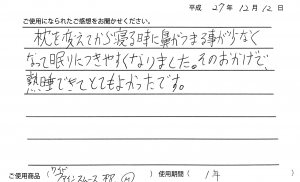 平成 27年 12月 12日
ご使用になられたご感想をお聞かせください。
枕を変えてから寝る時に鼻がつまる事が少なく
なって眠りにつきやすくなりました。そのおかげで、
熟睡できてとてもよかったです。
ご使用商品 ( スムース 枕 (M) ) 使用期間 ( 1年 )